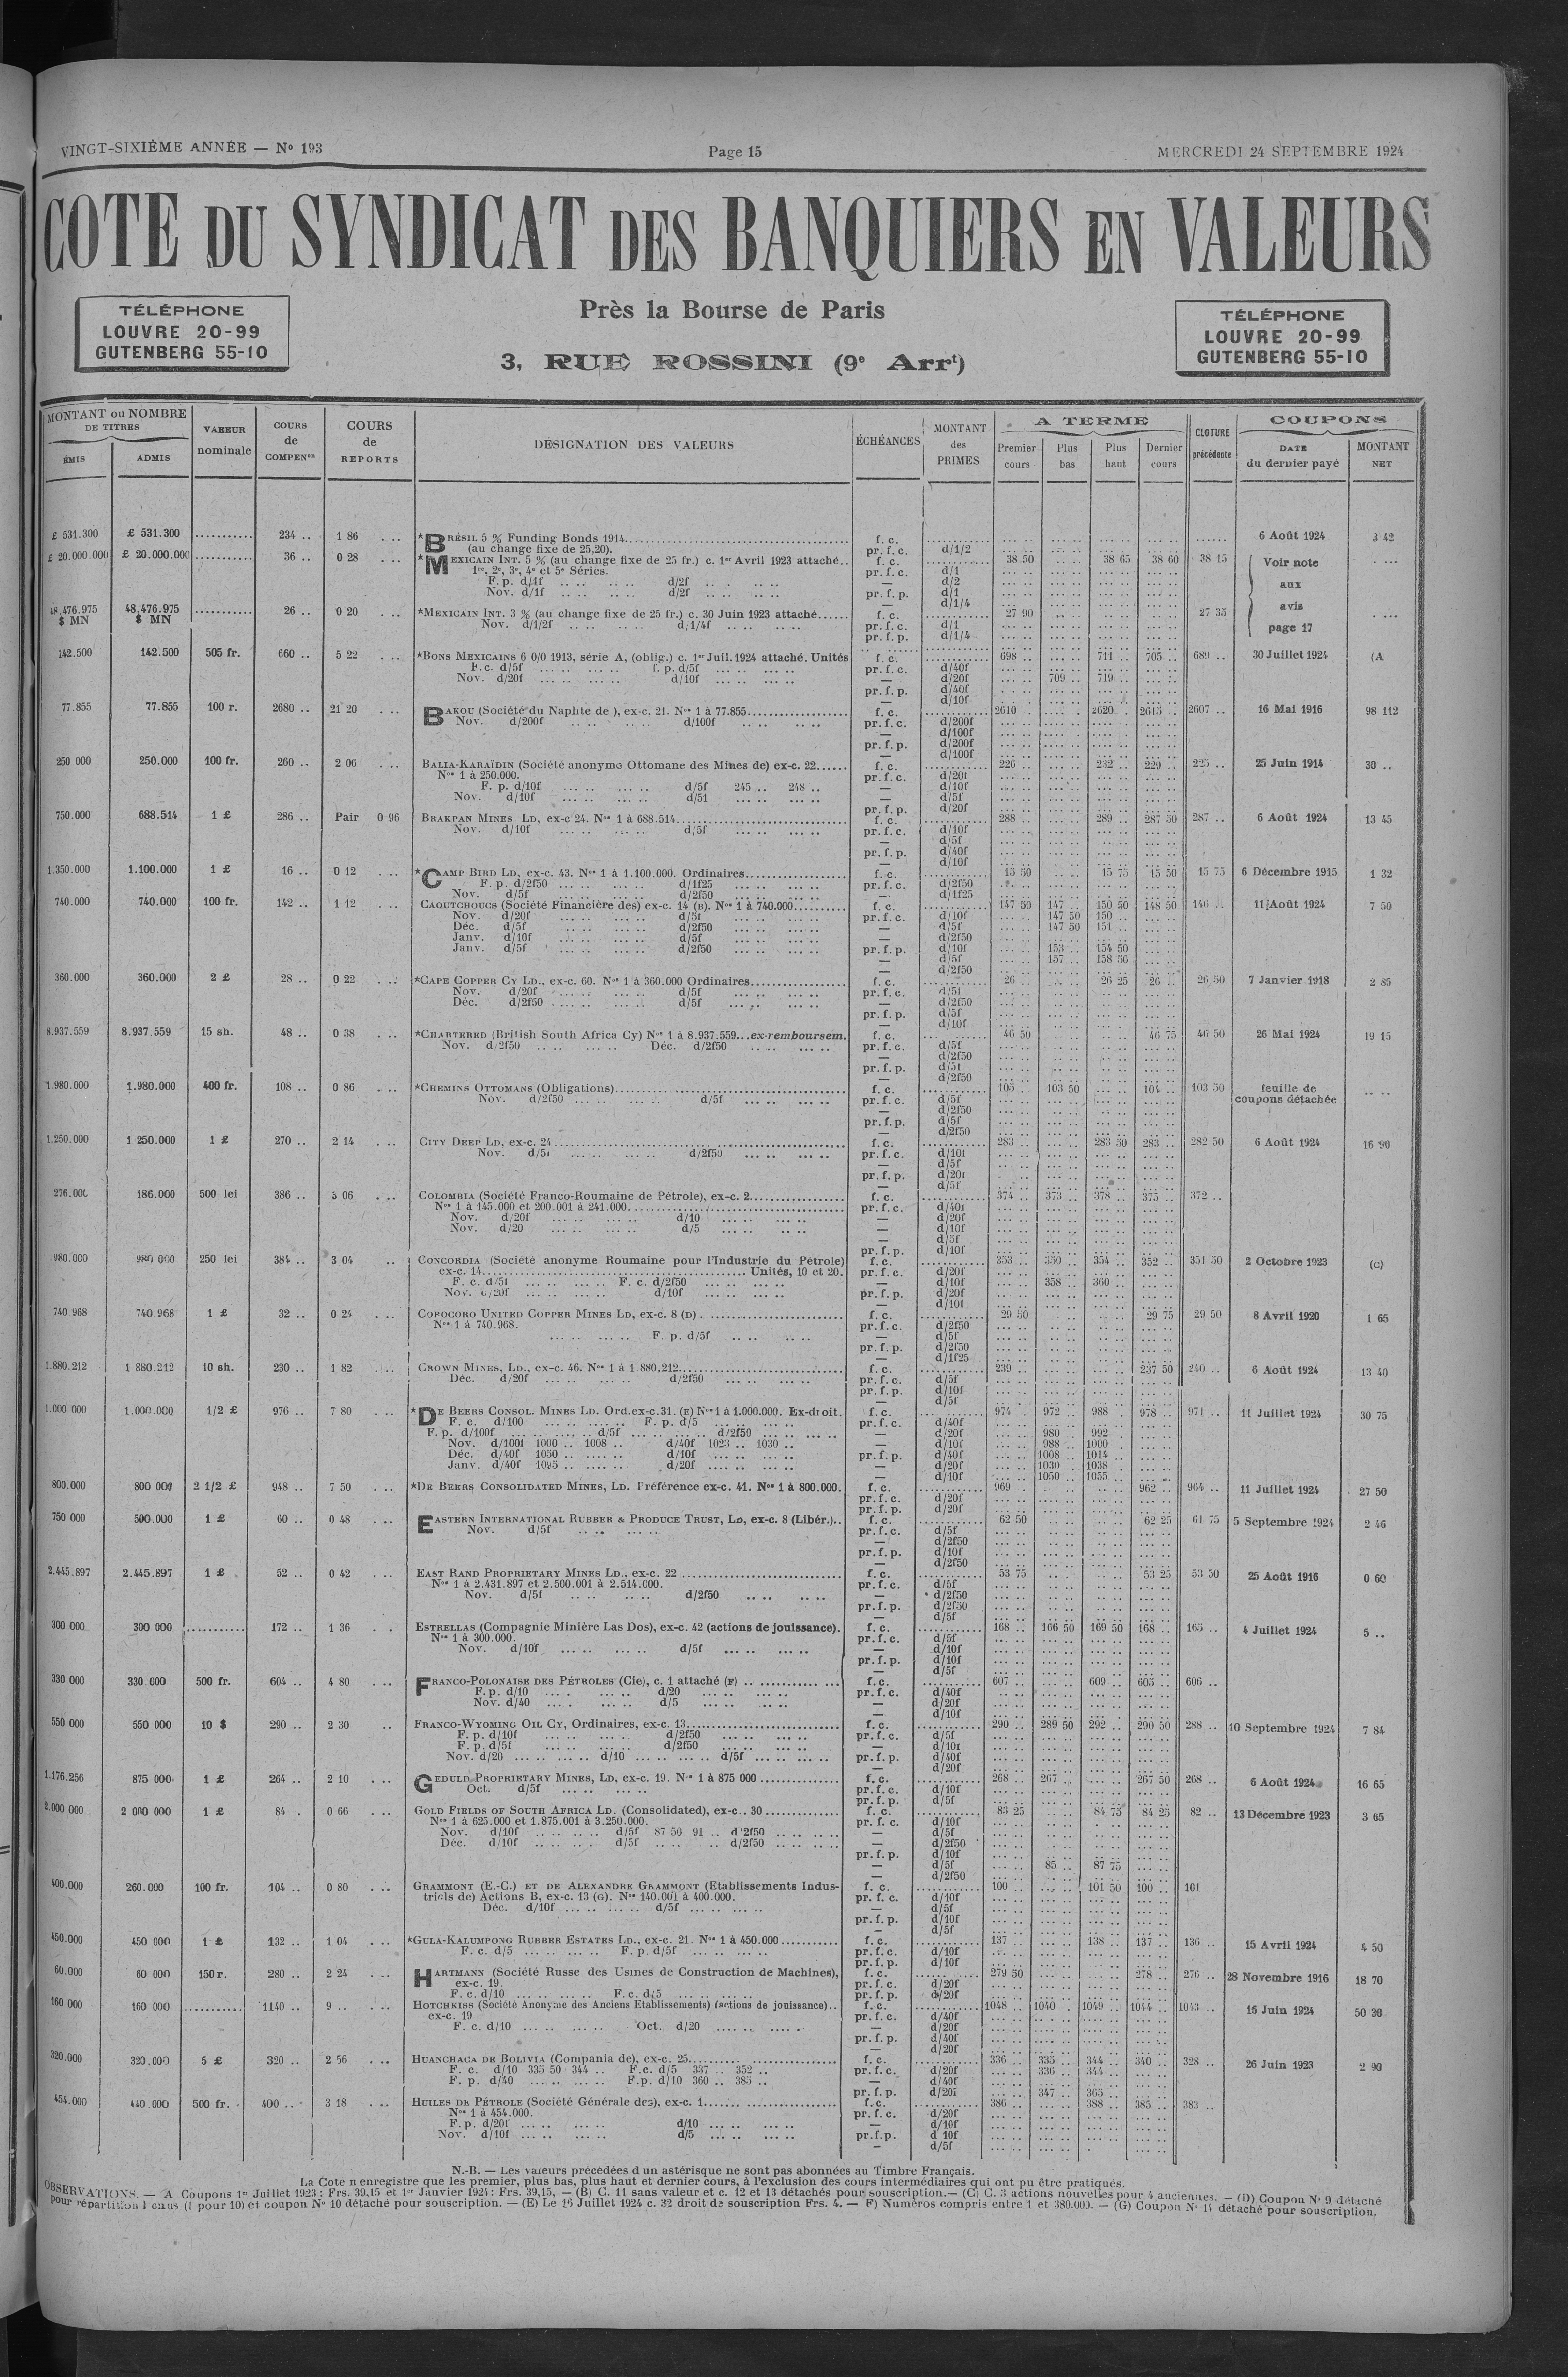 VINGT-SIXIÈME ANNÉE — N° 193 Page 15 MERCREDI 24 SEPTEMBRE 1924
COTE DU SYNDICAT DES BANQUIERS EN VALEURS
TÉLÉPHONE
LOUVRE 20-99
GUTENBERG 55-10
Près la Bourse de Paris
3, RUE ROSSINI (9e Arrt)
TÉLÉPHONE
LOUVRE 20-99
GUTENBERG 55-10
MONTANT ou NOMBRE DE TITRES
ÉMIS ADMIS
VALEUR nominale
COURS de COMPENon
COURS de REPORTS
DÉSIGNATION DES VALEURS
ÉCHÉANCES
MONTANT des PRIMES
A TERME
Premier cours Plus bas Plus haut Dernier cours
CLOTURE précédente
COUPONS
DATE du dernier payé MONTANT NET
£ 531.300 £ 531.300 234 .. 1 86 *BRÉSIL 5 % Funding Bonds 1914 f. c. 6 Août 1924 3 42
(au change fixe de 25,20). pr. f. c. d/1/2
£ 20.000.000 £ 20.000.000 36 .. 0 28 *MEXICAIN INT. 5 % (au change fixe de 25 fr.) c. 1er Avril 1923 attaché.. f. c. 38 50 38 65 38 60 38 15 Voir note aux avis page 17
1re, 2e, 3e, 4e et 5e Séries. pr. f. c. d/1
F. p. d/1f d/2f — d/2
Nov. d/1f d/2f pr. f. p. d/1
— d/1/4
48.476.975 $ MN 48.476.975 $ MN 26 .. 0 20 *MEXICAIN INT. 3 % (au change fixe de 25 fr.) c. 30 Juin 1923 attaché f. c. 27 90 27 35
Nov. d/1/2f d/1/4f pr. f. c. d/1
pr. f. p. d/1/4
142.500 142.500 505 fr. 660 .. 5 22 *BONS MEXICAINS 6 0/0 1913, série A, (oblig.) c. 1er Juil. 1924 attaché. Unités f. c. 698 .. 711 .. 705 .. 689 .. 30 Juillet 1924 (A
F.c. d/5f f. p. d/5f pr. f. c. d/40f
Nov. d/20f d/10f — d/20f 709 .. 719 ..
pr. f. p. d/40f
— d/10f
77.855 77.855 100 r. 2680 .. 21 20 BAKOU (Société du Naphte de ), ex-c. 21. Nos 1 à 77.855 f. c. 2610 2620 2615 .. 2607 .. 16 Mai 1916 98 112
Nov. d/200f d/100f pr. f. c. d/200f
— d/100f
pr. f. p. d/200f
— d/100f
250 000 250.000 100 fr. 260 .. 2 06 BALIA-KARAÏDIN (Société anonyme Ottomane des Mines de) ex-c. 22 f. c. 226 .. 232 .. 229 .. 225 .. 25 Juin 1914 30 ..
Nos 1 à 250.000. pr. f. c. d/20f
F. p. d/10f d/5f 245 .. 248 .. — d/10f
Nov. d/10f d/51 — d/5f
pr. f. p. d/20f
750.000 688.514 1 £ 286 .. Pair 0 96 BRAKPAN MINES LD, ex-c 24. Nos 1 à 688.514 f. c. 288 .. 289 .. 287 50 287 .. 6 Août 1924 13 45
Nov. d/10f d/5f pr. f. c. d/10f
— d/5f
pr. f. p. d/40f
— d/10f
1.350.000 1.100.000 1 £ 16 .. 0 12 *CAMP BIRD LD, ex-c. 43. Nos 1 à 1.100.000. Ordinaires f. c. 15 50 15 75 15 50 15 75 6 Décembre 1915 1 32
F. p. d/2f50 d/1f25 pr. f. c. d/2f50
Nov. d/5f d/2f50 — d/1f25
740.000 740.000 100 fr. 142 .. 1 12 CAOUTCHOUCS (Société Financière des) ex-c. 14 (B). Nos 1 à 740.000 f. c. 147 50 147 .. 150 50 148 50 146 .. 11 Août 1924 7 50
Nov. d/20f d/5f pr. f. c. d/10f 147 50 150 ..
Déc. d/5f d/2f50 — d/5f 147 50 151 ..
Janv. d/10f d/5f — d/2f50
Janv. d/5f d/2f50 pr. f. p. d/10f 153 .. 154 50
— d/5f 157 .. 158 50
— d/2f50
360.000 360.000 2 £ 28 .. 0 22 *CAPE COPPER CY LD., ex-c. 60. Nos 1 à 360.000 Ordinaires f. c. 26 .. 26 25 26 .. 26 50 7 Janvier 1918 2 85
Nov. d/20f d/5f pr. f. c. d/5f
Déc. d/2f50 d/5f — d/2f50
pr. f. p. d/5f
— d/10f
8.937.559 8.937.559 15 sh. 48 .. 0 38 *CHARTERED (British South Africa Cy) Nos 1 à 8.937.559...ex-remboursem. f. c. 46 50 46 75 46 50 26 Mai 1924 19 15
Nov. d/2f50 Déc. d/2f50 pr. f. c. d/5f
— d/2f50
pr. f. p. d/5f
— d/2f50
1.980.000 1.980.000 400 fr. 108 .. 0 86 *CHEMINS OTTOMANS (Obligations) f. c. 105 . 103 50 104 .. 103 50 feuille de coupons détachée
Nov. d/2f50 d/5f pr. f. c. d/5f
— d/2f50
pr. f. p. d/5f
— d/2f50
1.250.000 1 250.000 1 £ 270 .. 2 14 CITY DEEP LD, ex-c. 24 f. c. 283 .. 283 50 283 .. 282 50 6 Août 1924 16 90
Nov. d/5f d/2f50 pr. f. c. d/10f
— d/5f
pr. f. p. d/20f
— d/5f
276.000 186.000 500 lei 386 .. 3 06 COLOMBIA (Société Franco-Roumaine de Pétrole), ex-c. 2 f. c. 374 .. 373 .. 378 .. 375 .. 372 ..
Nos 1 à 145.000 et 200.001 à 241.000 pr. f. c. d/40f
Nov. d/20f d/10 — d/20f
Nov. d/20 d/5 — d/10f
— d/5f
pr. f. p. d/10f
980.000 980 000 250 lei 384 .. 3 04 CONCORDIA (Société anonyme Roumaine pour l'Industrie du Pétrole) f. c. 353 .. 350 .. 354 .. 352 .. 351 50 2 Octobre 1923 (c)
ex-c. 14 Unités, 10 et 20. pr. f. c. d/20f
F. c. d/5f F. c. d/2f50 — d/10f 358 .. 360 ..
Nov. d/20f d/10f pr. f. p. d/20f
— d/10f
740 968 740.968 1 £ 32 .. 0 24 COPOCORO UNITED COPPER MINES LD, ex-c. 8 (D) f. c. 29 50 29 75 29 50 8 Avril 1920 1 65
Nos 1 à 740.968. pr. f. c. d/2f50
F. p. d/5f — d/5f
pr. f. p. d/2f50
— d/1f25
1.880.212 1 880.212 10 sh. 230 .. 1 82 CROWN MINES, LD., ex-c. 46. Nos 1 à 1.880.212 f. c. 239 .. 237 50 240 .. 6 Août 1924 13 40
Déc. d/20f d/2f50 pr. f. c. d/5f
pr. f. p. d/10f
— d/5f
1.000 000 1.000.000 1/2 £ 976 .. 7 80 *DE BEERS CONSOL. MINES LD. Ord.ex-c.31. (E) Nos 1 à 1.000.000. Ex-droit. f. c. 974 .. 972 .. 988 .. 978 .. 971 .. 11 Juillet 1924 30 75
F. c. d/100 F. p. d/5 pr. f. c. d/40f
F. p. d/100f d/5f d/2f50 — d/20f 980 .. 992 ..
Nov. d/100f 1000 .. 1008 .. d/40f 1023 .. 1030 .. — d/10f 988 .. 1000 ..
Déc. d/40f 1050 .. d/10f pr. f. p. d/40f 1008 .. 1014 ..
Janv. d/40f 1095 .. d/20f — d/20f 1030 .. 1038 ..
— d/10f 1050 .. 1055 ..
800.000 800 000 2 1/2 £ 948 .. 7 50 *DE BEERS CONSOLIDATED MINES, LD. Préférence ex-c. 41. Nos 1 à 800.000. f. c. 969 . 962 .. 964 .. 11 Juillet 1924 27 50
pr. f. c. d/20f
pr. f. p. d/20f
750 000 500.000 1 £ 60 .. 0 48 EASTERN INTERNATIONAL RUBBER & PRODUCE TRUST, LD, ex-c. 8 (Libér.).. f. c. 62 50 62 25 61 75 5 Septembre 1924 2 46
Nov. d/5f pr. f. c. d/5f
— d/2f50
pr. f. p. d/10f
— d/2f50
2.445.897 2.445.897 1 £ 52 .. 0 42 EAST RAND PROPRIETARY MINES LD., ex-c. 22 f. c. 53 75 53 25 53 50 25 Août 1916 0 60
Nos 1 à 2.431.897 et 2.500.001 à 2.514.000. pr. f. c. d/5f
Nov. d/5f d/2f50 — d/2f50
pr. f. p. d/2f50
— d/5f
300.000 300 000 172 .. 1 36 ESTRELLAS (Compagnie Minière Las Dos), ex-c. 42 (actions de jouissance). f. c. 168 .. 166 50 169 50 168 .. 165 .. 4 Juillet 1924 5 ..
Nos 1 à 300.000. pr. f. c. d/5f
Nov. d/10f d/5f — d/10f
pr. f. p. d/10f
— d/5f
330 000 330.000 500 fr. 604 .. 4 80 FRANCO-POLONAISE DES PÉTROLES (Cie), c. 1 attaché (F) f. c. 607 .. 609 .. 605 .. 606 ..
F. p. d/10 d/20 pr. f. c. d/40f
Nov. d/40 d/5 — d/20f
— d/10f
550 000 550 000 10 $ 290 .. 2 30 FRANCO-WYOMING OIL CY, Ordinaires, ex-c. 13 f. c. 290 .. 289 50 292 .. 290 50 288 .. 10 Septembre 1924 7 84
F. p. d/10f d/2f50 pr. f. c. d/5f
F. p. d/5f d/2f50 — d/10f
Nov. d/20 d/10 d/5f pr. f. p. d/40f
— d/20f
1.176.256 875 000 1 £ 264 .. 2 10 GEDULD PROPRIETARY MINES, LD, ex-c. 19. Nos 1 à 875 000 f. c. 268 .. 267 .. 267 50 268 .. 6 Août 1924 16 65
Oct. d/5f pr. f. c. d/10f
pr. f. p. d/5f
2.000 000 2 000 000 1 £ 84 . 0 66 GOLD FIELDS OF SOUTH AFRICA LD. (Consolidated), ex-c.. 30 f. c. 83 25 84 75 84 25 82 .. 13 Décembre 1923 3 65
Nos 1 à 625.000 et 1.875.001 à 3.250.000. pr. f. c. d/10f
Nov. d/10f d/5f 87 50 91 .. d/2f50 — d/5f
Déc. d/10f d/5f d/2f50 — d/2f50
pr. f. p. d/10f
— d/5f 85 .. 87 75
— d/2f50
400.000 260.000 100 fr. 104 .. 0 80 GRAMMONT (E.-C.) ET DE ALEXANDRE GRAMMONT (Etablissements Indus- f. c. 100 .. 101 50 100 .. 101
triels de) Actions B, ex-c. 13 (G). Nos 140.001 à 400.000. pr. f. c. d/10f
Déc. d/10f d/5f — d/5f
pr. f. p. d/10f
— d/5f
450.000 450 000 1 £ 132 .. 1 04 *GULA-KALUMPONG RUBBER ESTATES LD., ex-c. 21. Nos 1 à 450.000 f. c. 137 .. 138 .. 137 .. 136 .. 15 Avril 1924 4 50
F. c. d/5 F. p. d/5f pr. f. c. d/10f
pr. f. p. d/10f
60.000 60 000 150 r. 280 .. 2 24 HARTMANN (Société Russe des Usines de Construction de Machines), f. c. 279 50 278 .. 276 .. 28 Novembre 1916 18 70
ex-c. 19. pr. f. c. d/20f
F. c. d/10 F. c. d/5 pr. f. p. d/20f
160 000 160 000 1140 .. 9 .. HOTCHKISS (Société Anonyme des Anciens Etablissements) (actions de jouissance).. f. c. 1048 .. 1040 .. 1049 .. 1044 .. 1043 .. 16 Juin 1924 50 30
ex-c. 19 pr. f. c. d/40f
F. c. d/10 Oct. d/20 — d/20f
pr. f. p. d/40f
— d/20f
320.000 320.000 5 £ 320 .. 2 56 HUANCHACA DE BOLIVIA (Compania de), ex-c. 25 f. c. 336 .. 335 .. 344 .. 340 .. 328 .. 26 Juin 1923 2 90
F. c. d/10 335 50 344 .. F.c. d/5 337 .. 352 .. pr. f. c. d/20f 336 .. 344 ..
F. p. d/40 F.p. d/10 360 .. 385 .. — d/40f
pr. f. p. d/20f 347 .. 365 ..
454.000 440.000 500 fr. 400 .. 3 18 HUILES DE PÉTROLE (Société Générale des), ex-c. 1 f. c. 386 .. 388 .. 385 .. 383 ..
Nos 1 à 454.000. pr. f. c. d/20f
F. p. d/20f d/10 — d/10f
Nov. d/10f d/5 pr. f. p. d 10f
— d/5f
N.-B. — Les valeurs précédées d un astérisque ne sont pas abonnées au Timbre Français.
La Cote n enregistre que les premier, plus bas, plus haut et dernier cours, à l'exclusion des cours intermédiaires qui ont pu être pratiqués.
OBSERVATIONS. — A Coupons 1er Juillet 1923 : Frs. 39,15 et 1er Janvier 1924 : Frs. 39,15, — (B) C. 11 sans valeur et c. 12 et 13 détachés pour souscription. — (C) C. 3 actions nouvelles pour 4 anciennes. — (D) Coupon N° 9 détaché
pour répartition (1 pour 10) et coupon N° 10 détaché pour souscription. — (E) Le 16 Juillet 1924 c. 32 droit de souscription Frs. 4. — F) Numéros compris entre 1 et 380.000. — (G) Coupon N° 14 détaché pour souscription.